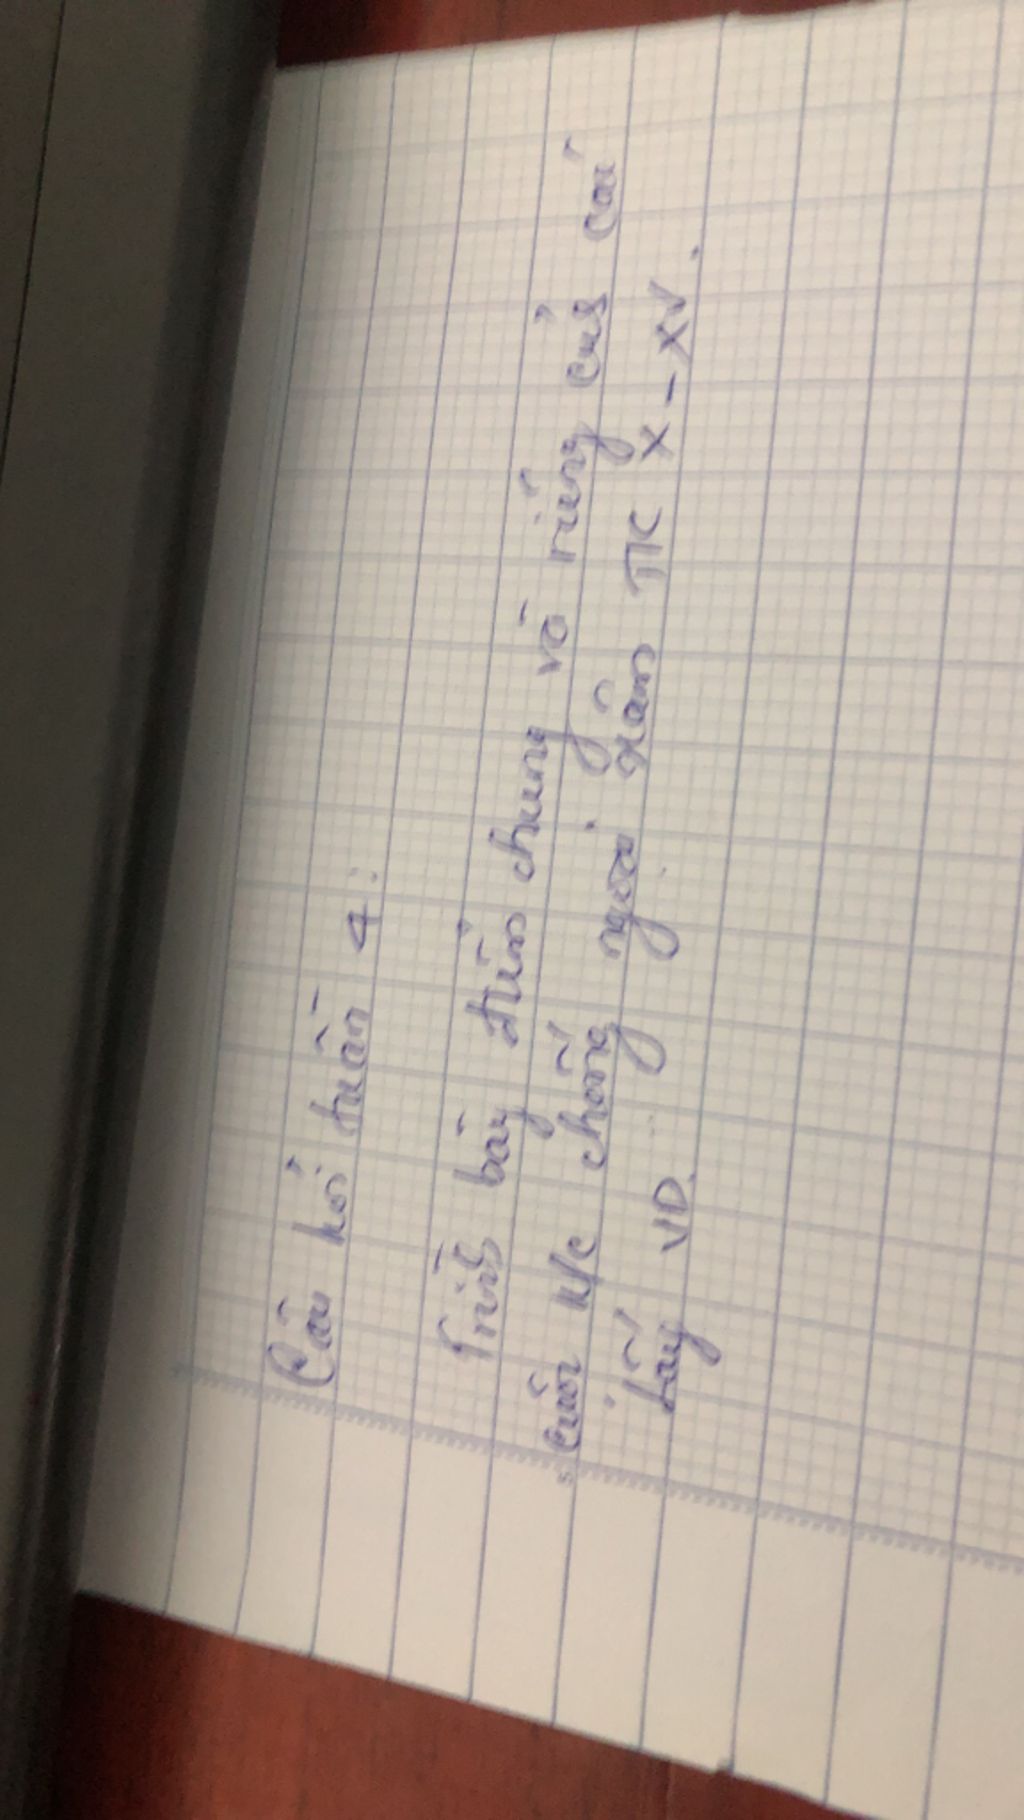 Câu hỏi tuần 4:
Trình bày điểm chung và riêng của các
cuộc k/c chống ngoại xâm TK X - XV.
Lấy VD.